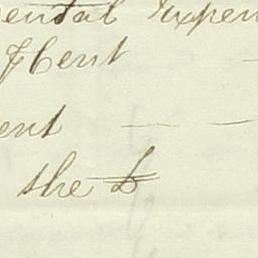 ental Expen
⅌ Cent
ent
the £